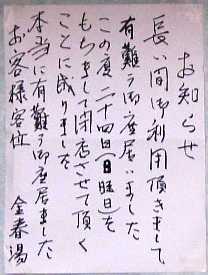 お知らせ
長い間御利用頂きまして
有難う御座居ました
この度二十四日(日曜日)を
もちまして閉店させて頂く
ことに成りました
本当に有難う御座居ました
お客様各位 金春湯